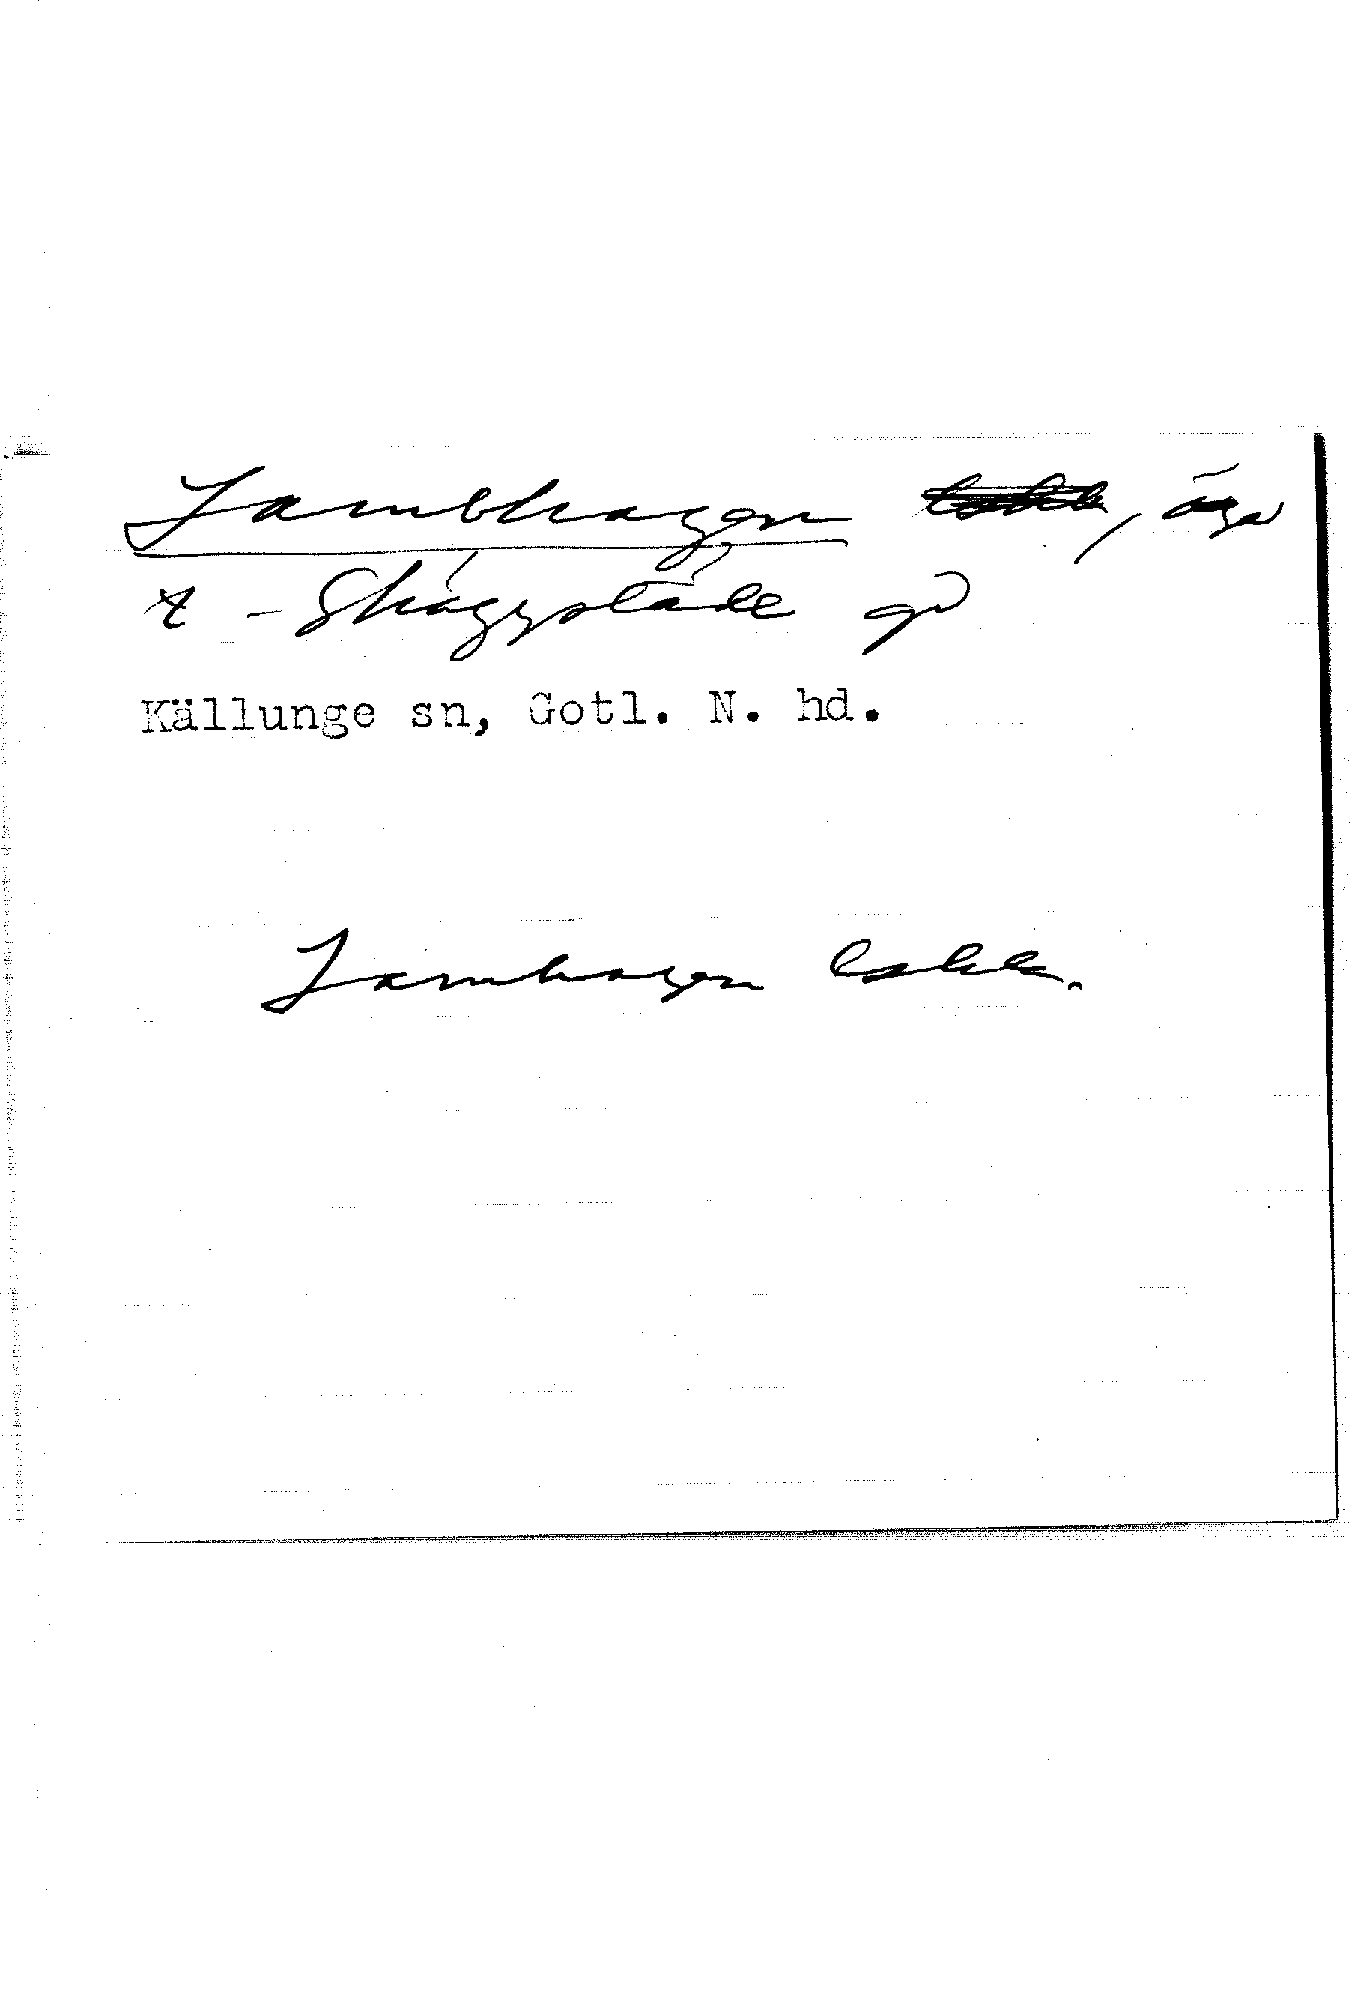 Lambhagen, äga
t - Skäggstäde gd
Källunge sn, Gotl. N. hd.
Lamhagen